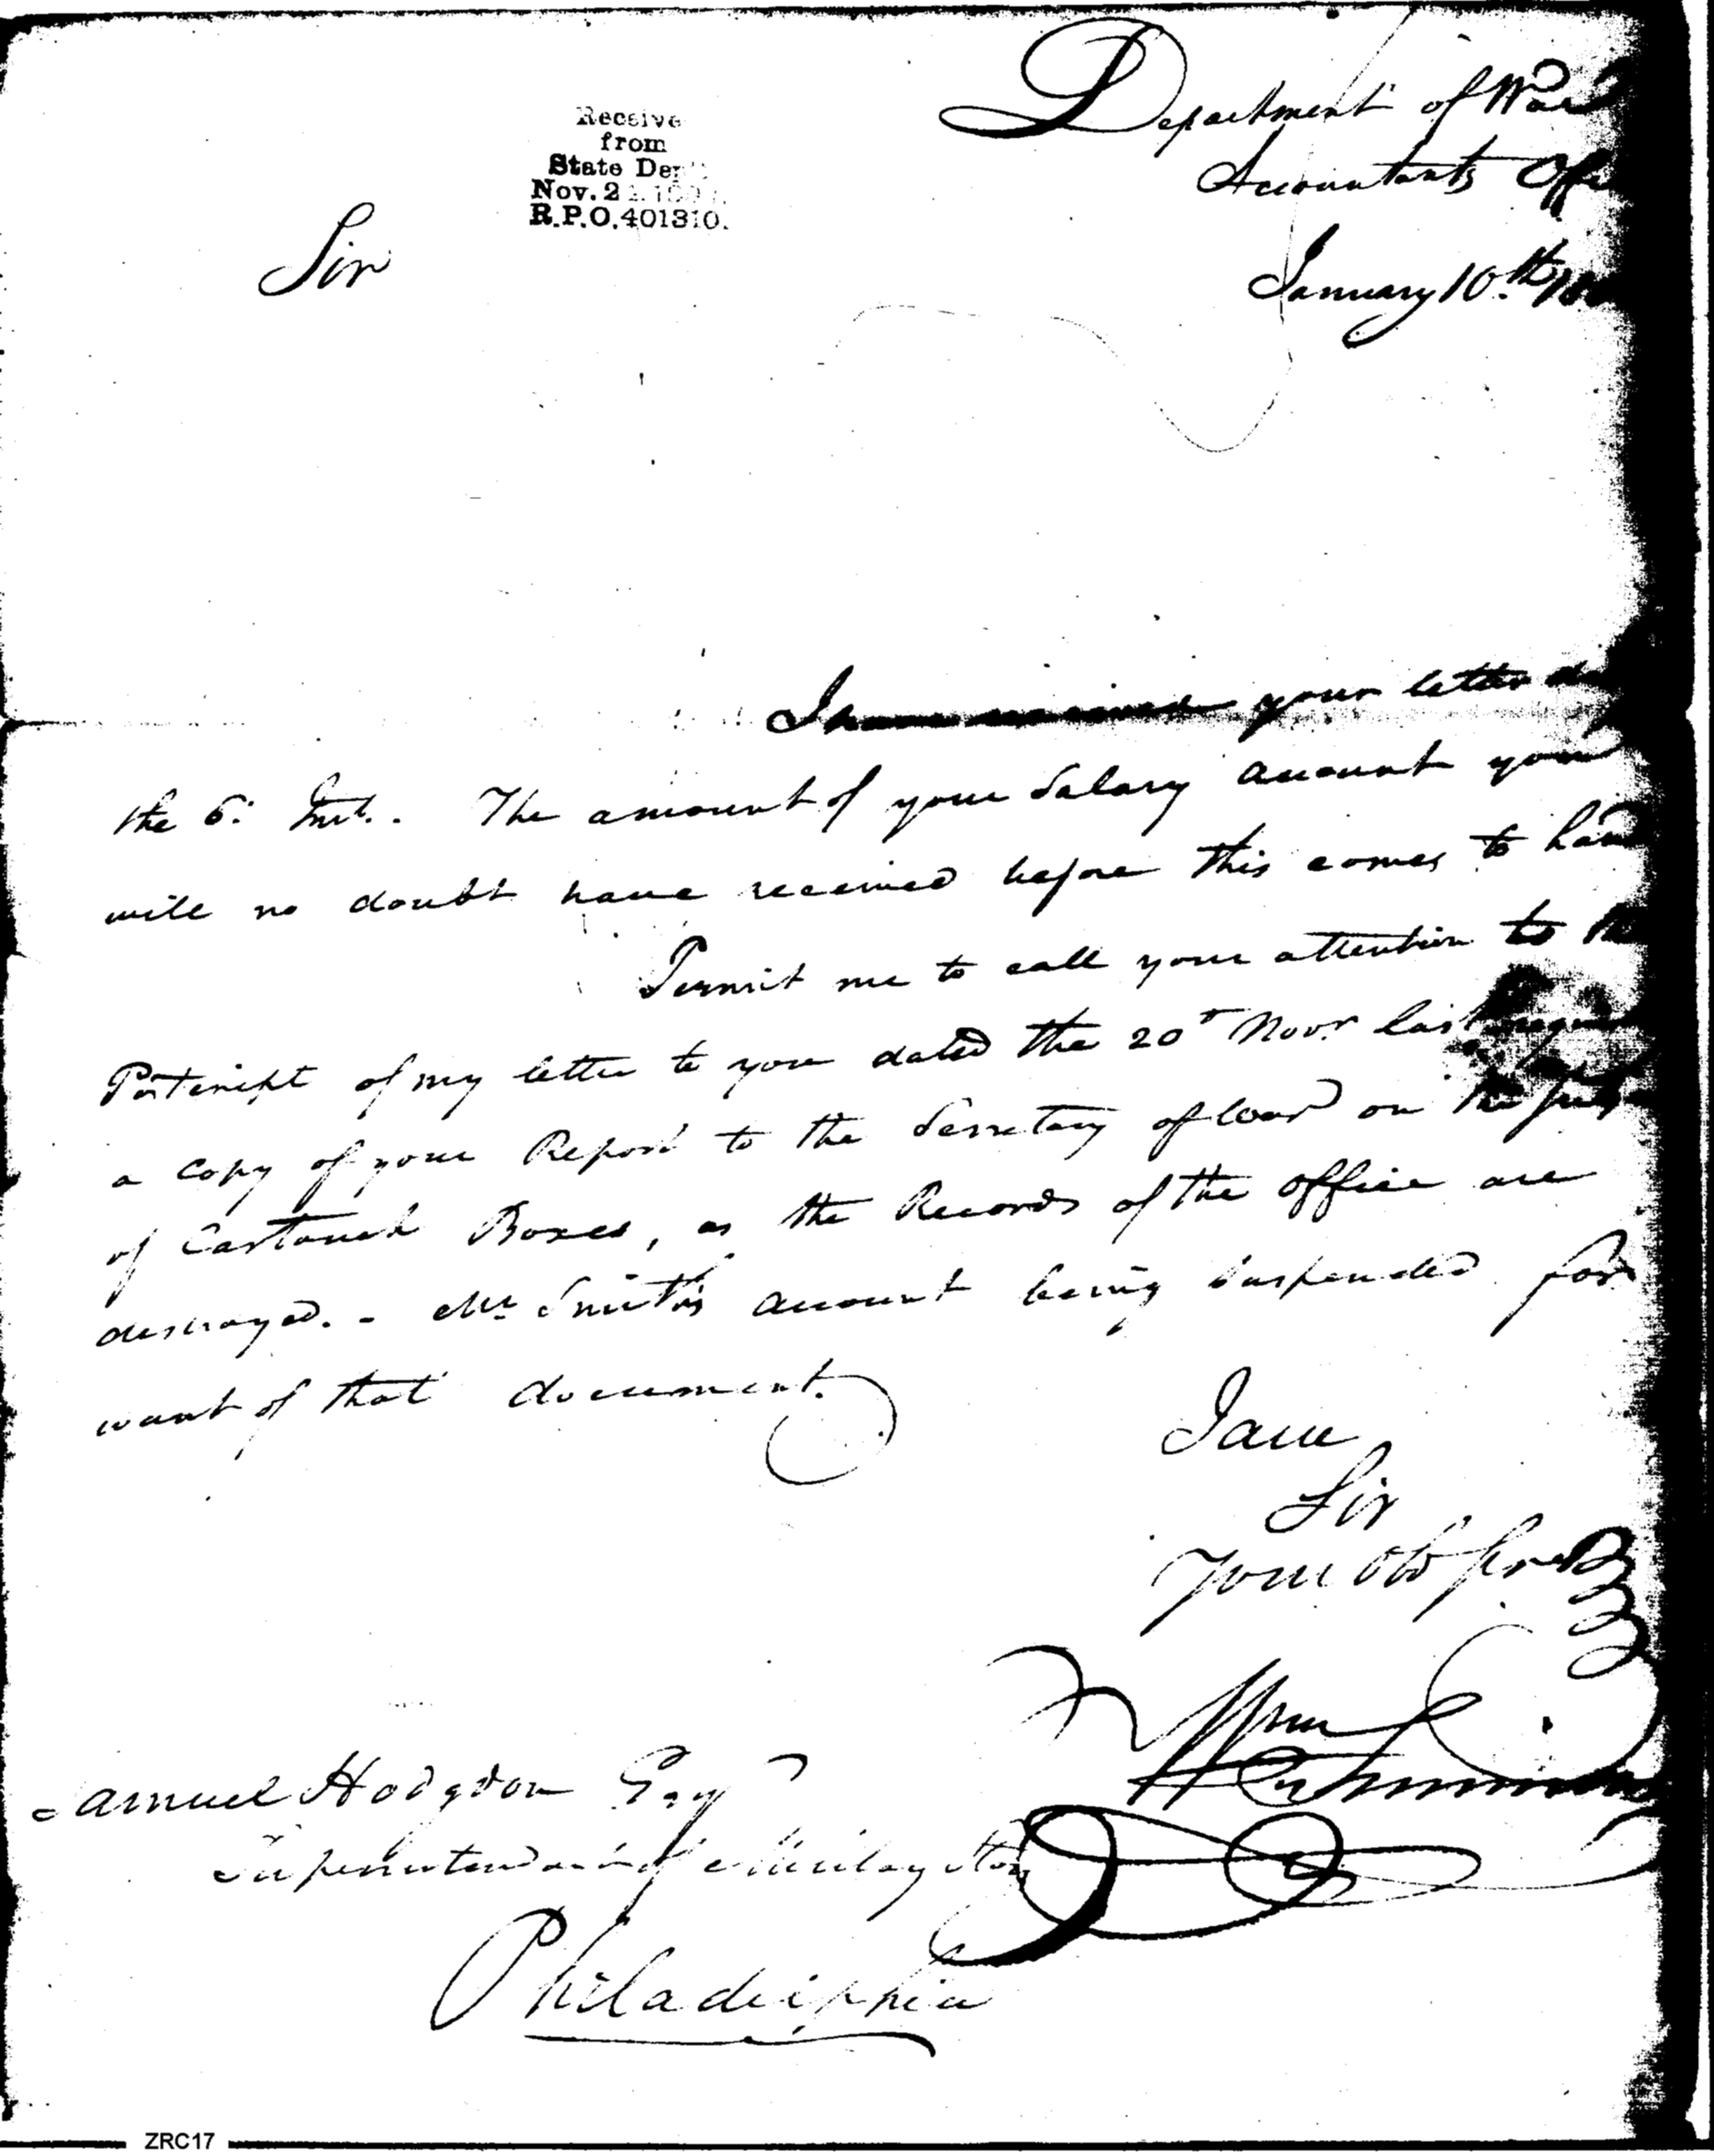 Department of War
Accountants Offi
Receive
from
State Dep
Nov. 2
R.P.O. 401310.
Sir
January 10th 18
I have received your letter
the 6th Inst. The amount of your Salary account you
will no doubt have received before this comes to hand
Permit me to call your attention to the
Postcript of my letter to you dated the 20th Novr. last
a Copy of your Report to the Secretary of War on the
of Cartouch Boxes, as the Records of the Office are
destroyed. - Mr. Smith's account being suspended for
want of that document.
I am
Sir
Your Obd Serv
Wm Simmons
Samuel Hodgdon Esqr
Superintendant of Military Stores
Philadelphia
ZRC17